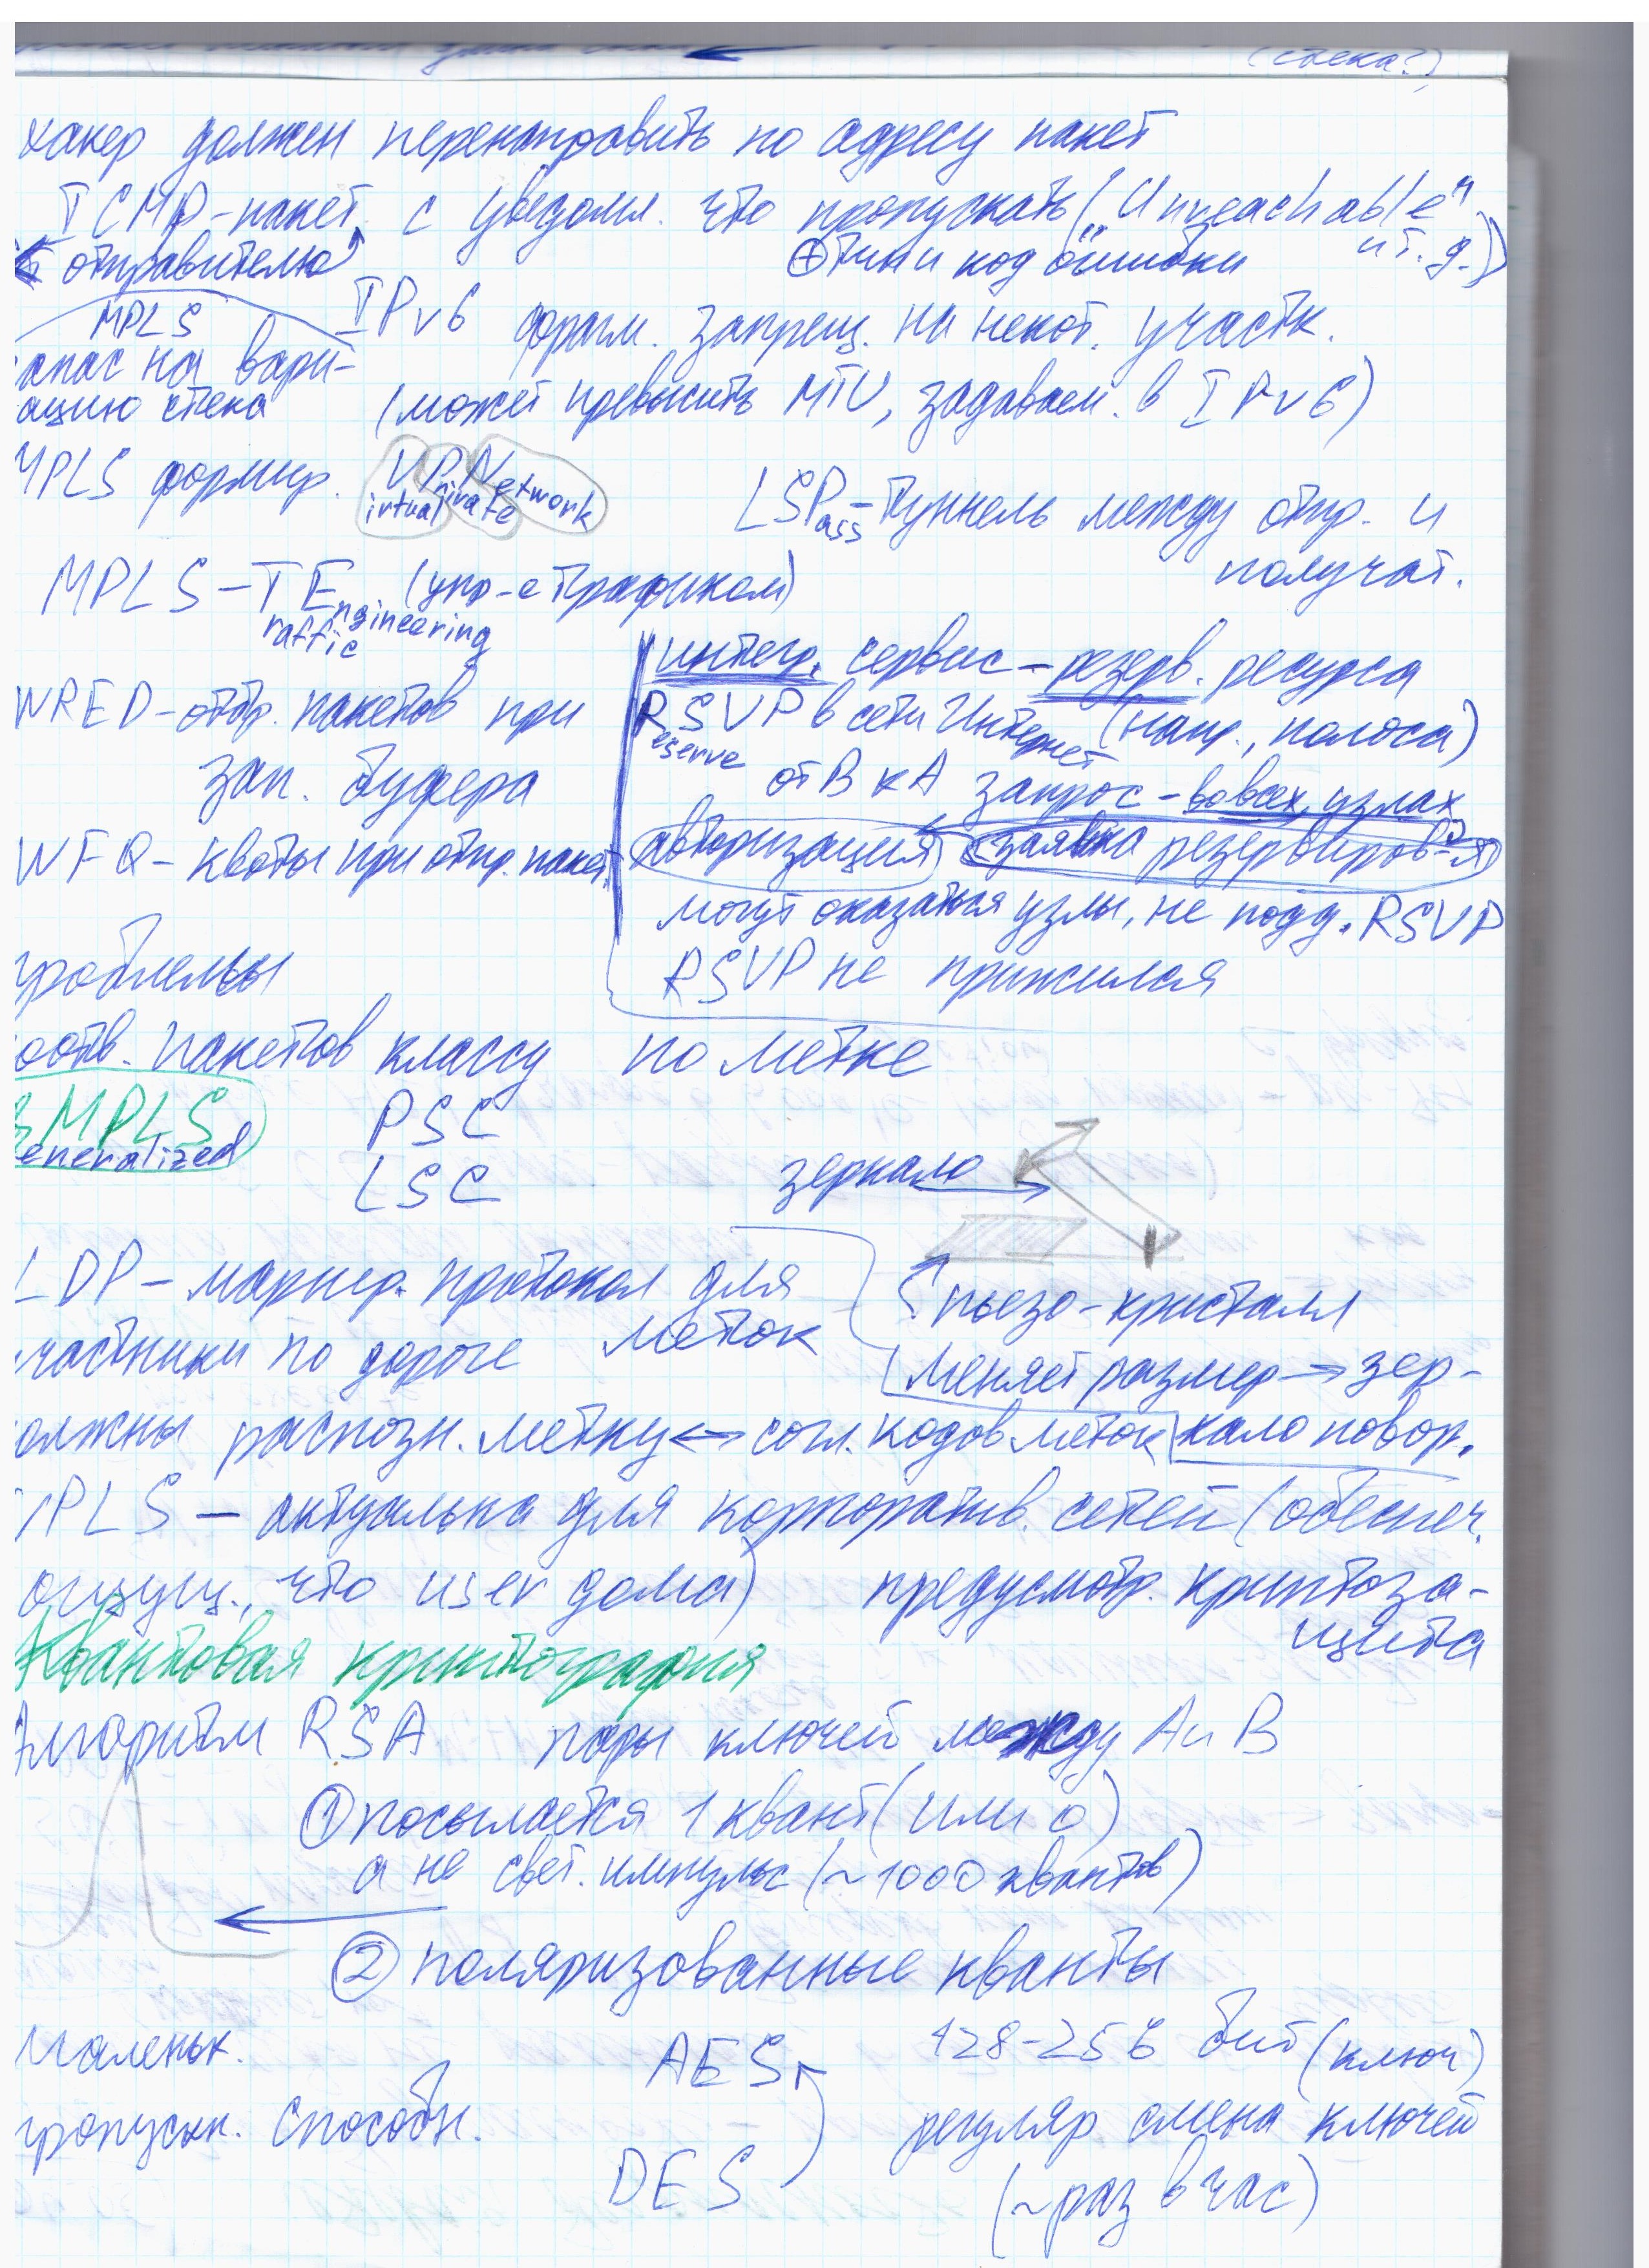 (стека?)
хакер должен перенаправить по адресу пакет
ICMP-пакет с уведомл. что пропускать ("Unreachable"
и т. д.)
отправителю
⊕ тип и код ошибки
MPLS
апас на вари-
ацию стека
IPv6 фрагм. запрещ. на некот. участк.
(может превысить MTU, задаваем. в IPv6)
MPLS формир. VPNetwork
irtual rivate
LSPass - туннель между отпр. и
получат.
MPLS-TEngineering (упр-е трафиком)
raffic
WRED - отбр. пакетов при
зап. буфера
WFQ - квоты при отпр. пакет.
интегр. сервис - резерв. ресурса
RSVP в сети Интернет (напр., полоса)
eserve
от В к А запрос - во всех узлах
авторизация заявка резервиров-я
могут оказаться узлы, не подд. RSVP
RSVP не прижился
проблемы
оотв. пакетов классу по метке
GMPLS
eneralized
PSC
LSC
зеркало
LDP - маршр. протокол для
меток
частники по дороге
пьезо-кристалл
меняет размер → зер-
кало повор.
олжны распозн. метку ↔ согл. кодов меток
MPLS - актуальна для корпоратив. сетей (обеспеч.
ощущ., что user дома) предусмотр. криптоза-
щита
Квантовая криптография
Алгоритм RSA пары ключей между А и В
① посылается 1 квант (или 0)
а не свет. импульс (~1000 квантов)
② поляризованные кванты
маленьк.
пропускн. способн.
AES
DES
128-256 бит (ключ)
регуляр смена ключей
(~раз в час)